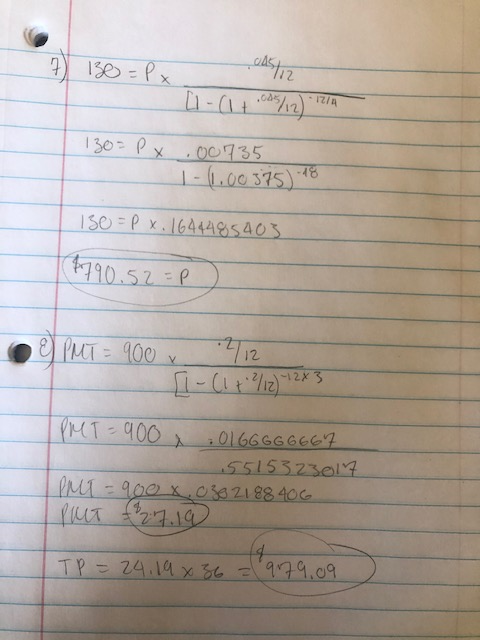 7) 130 = P x .045/12
[1 - (1 + .045/12)^-12/4
130 = P x .00735
1 - (1.00375)^-48
130 = P x .1644485403
$790.52 = P
8) PMT = 900 x .2/12
[1 - (1 + .2/12)^-12x3
PMT = 900 x .0166666667
.5515323017
PMT = 900 x .0302188406
PMT = $27.19
TP = 24.19 x 36 = $979.09